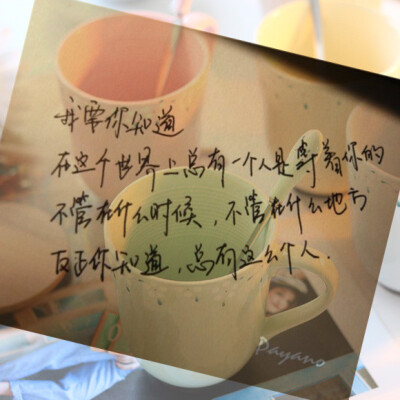 我需你知道
在这个世界上总有一个人是等着你的
不管在什么时候，不管在什么地方
反正你知道，总有这么个人.
Payano